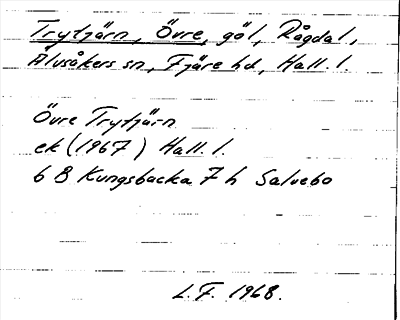 Trytjärn, Övre, göl, Rågdal,
Älvsåkers sn, Fjäre hd, Hall. l.
Övre Trytjärn
ek (1967) Hall. l.
6 B Kungsbacka 7 h Salvebo
L.F. 1968.